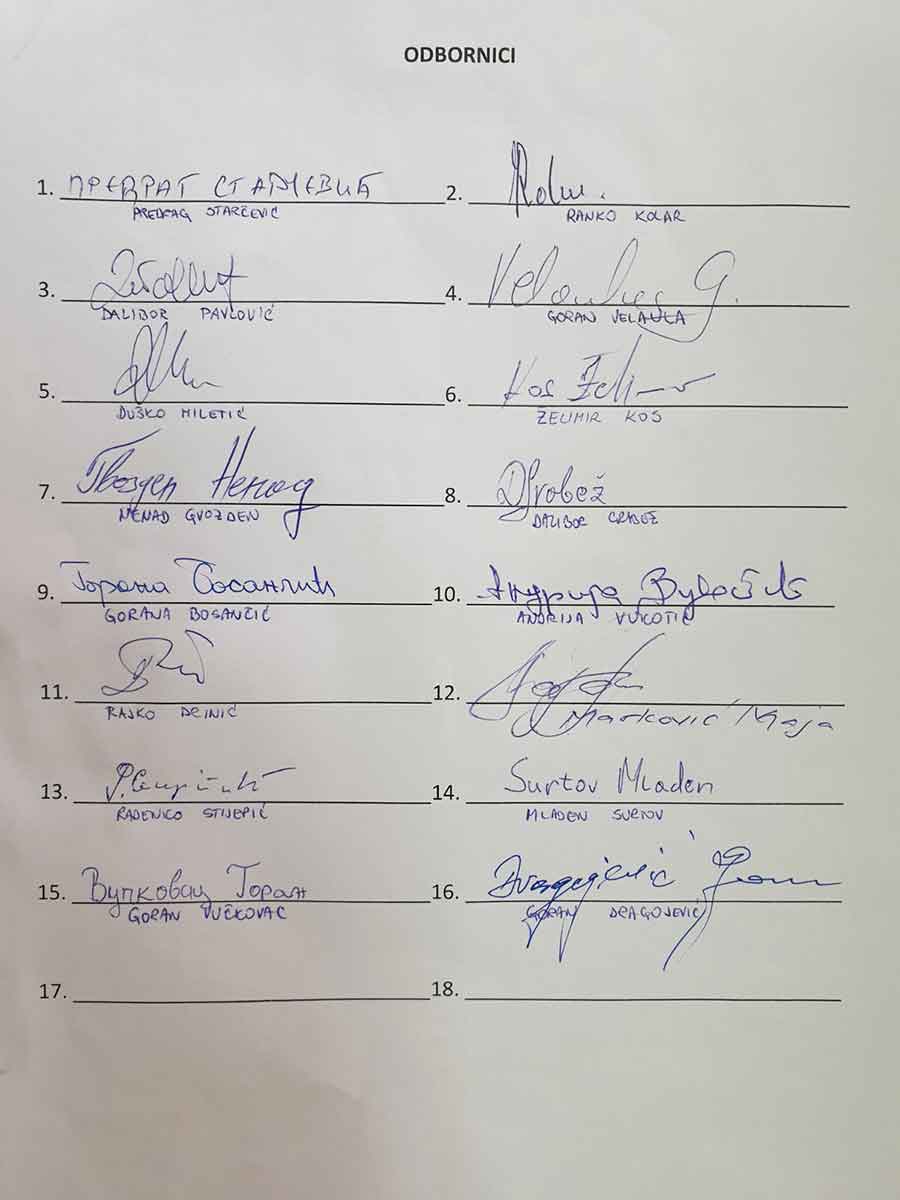 ODBORNICI
1. ПРЕДРАГ СТАРЧЕВИЋ 2.
PREDRAG STARČEVIĆ RANKO KOLAR
3. 4. G.
DALIBOR PAVLOVIĆ GORAN VELAULA
5. 6. Kos
DUŠKO MILETIĆ ŽELIMIR KOS
7. Гвозден Ненад 8. DGrobež
NENAD GVOZDEN DALIBOR GRABEŽ
9. Горана Босанчић 10. Андрија
GORANA BOSANČIĆ ANDRIJA VUKOTIĆ
11. 12.
RAJKO DEINIĆ Marković Maja
13. 14. Surtov Mladen
RADENKO STIJEPIĆ MLADEN SURTOV
15. Вучковац Горан 16.
GORAN VUČKOVAC GORAN DRAGOJEVIĆ
17. 18.